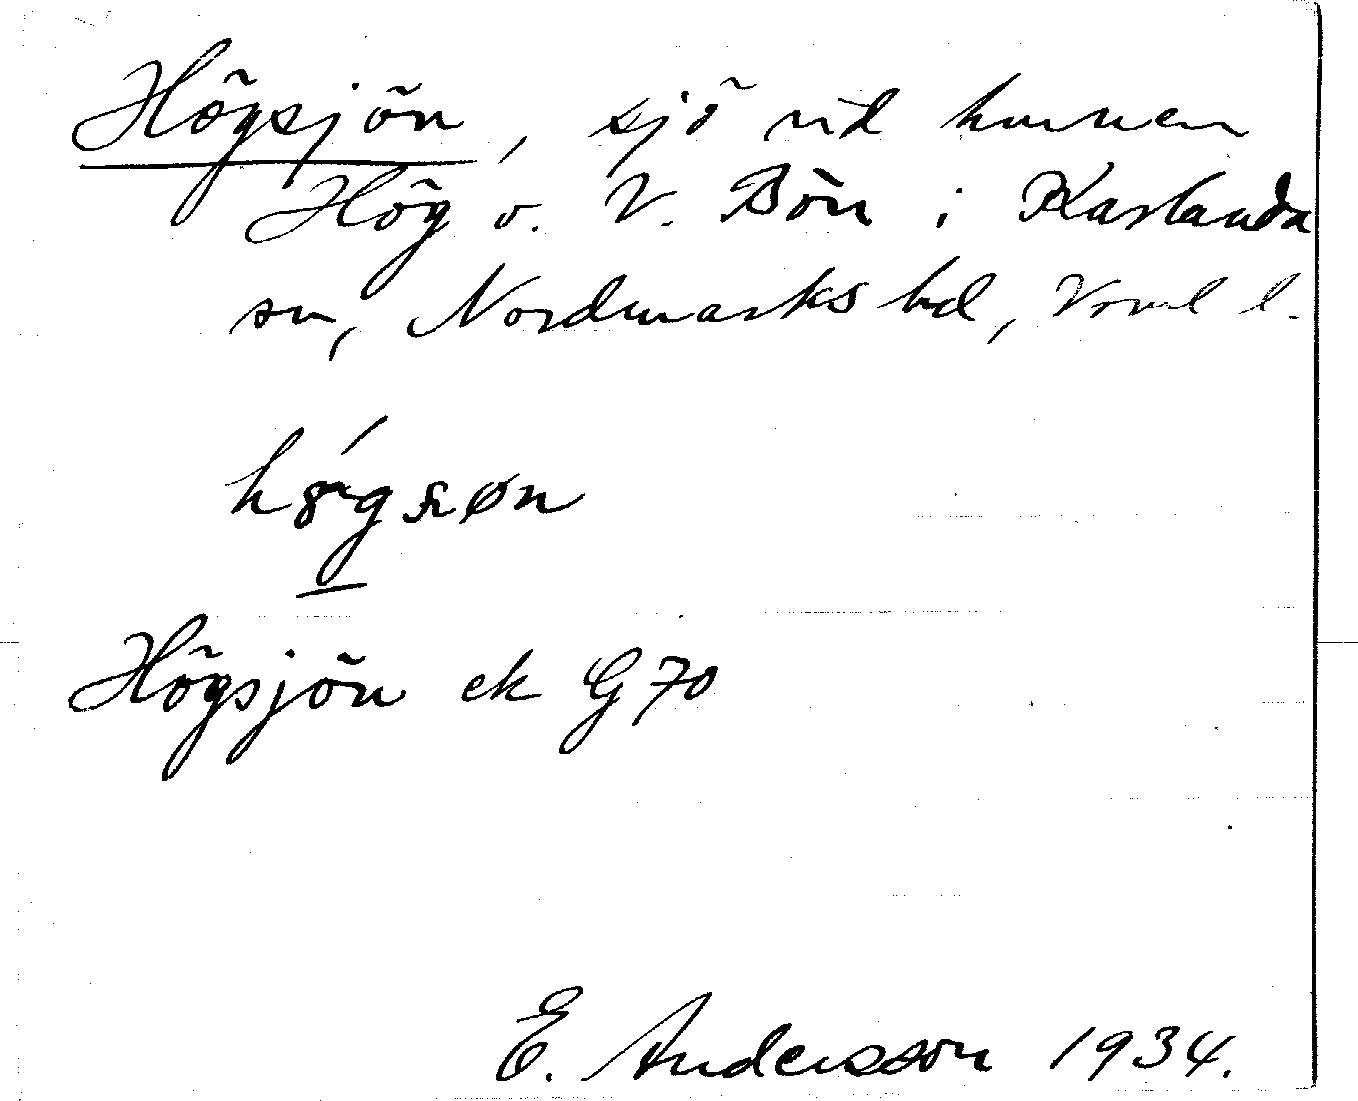 Högsjön, sjö vid hmnen
Hög o. V. Bön i Karlanda
sn, Nordmarks hd, Vrml l.
Högsjön ek G 70
E. Andersson 1934.